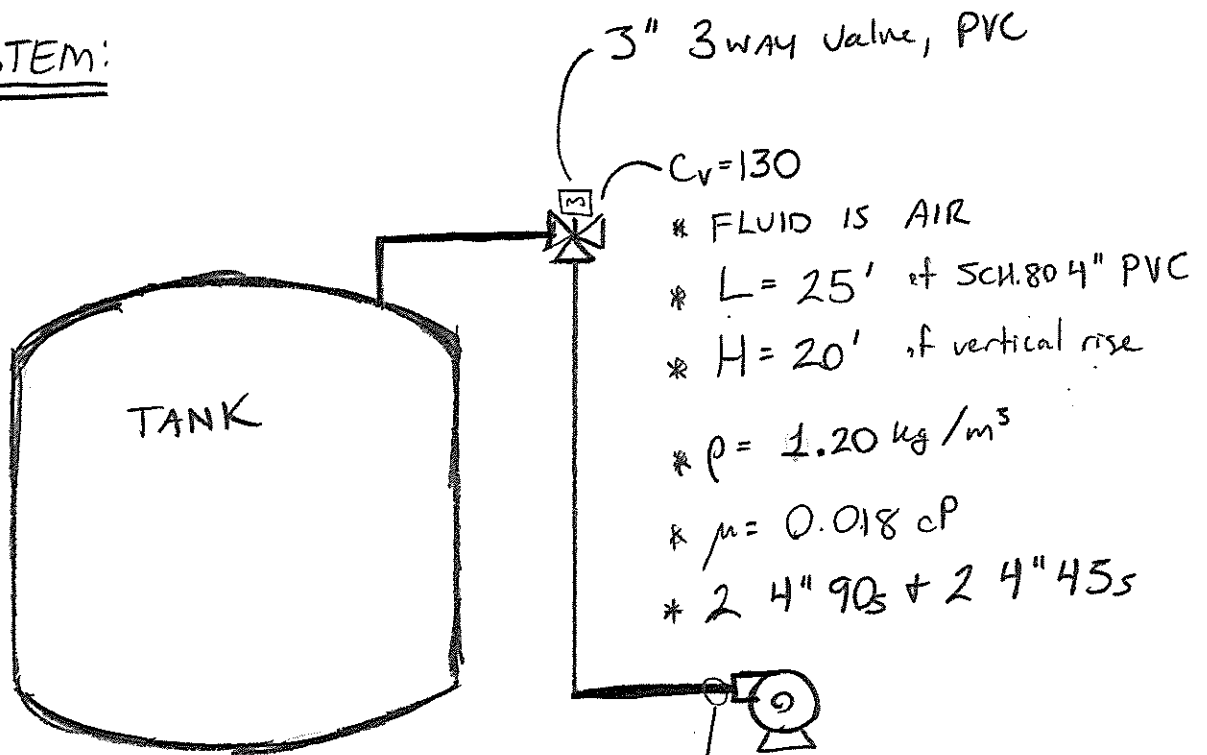 STEM:
3" 3WAY Valve, PVC
M
Cv=130
* FLUID IS AIR
* L = 25' of SCH.80 4" PVC
* H = 20' of vertical rise
TANK
* ρ = 1.20 kg/m³
* μ = 0.018 cP
* 2 4" 90s + 2 4" 45s